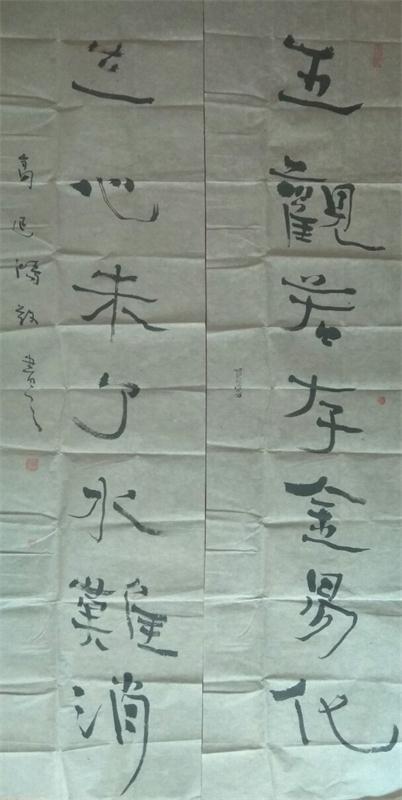 五觀若存金易化
三心未了水難消
高
書